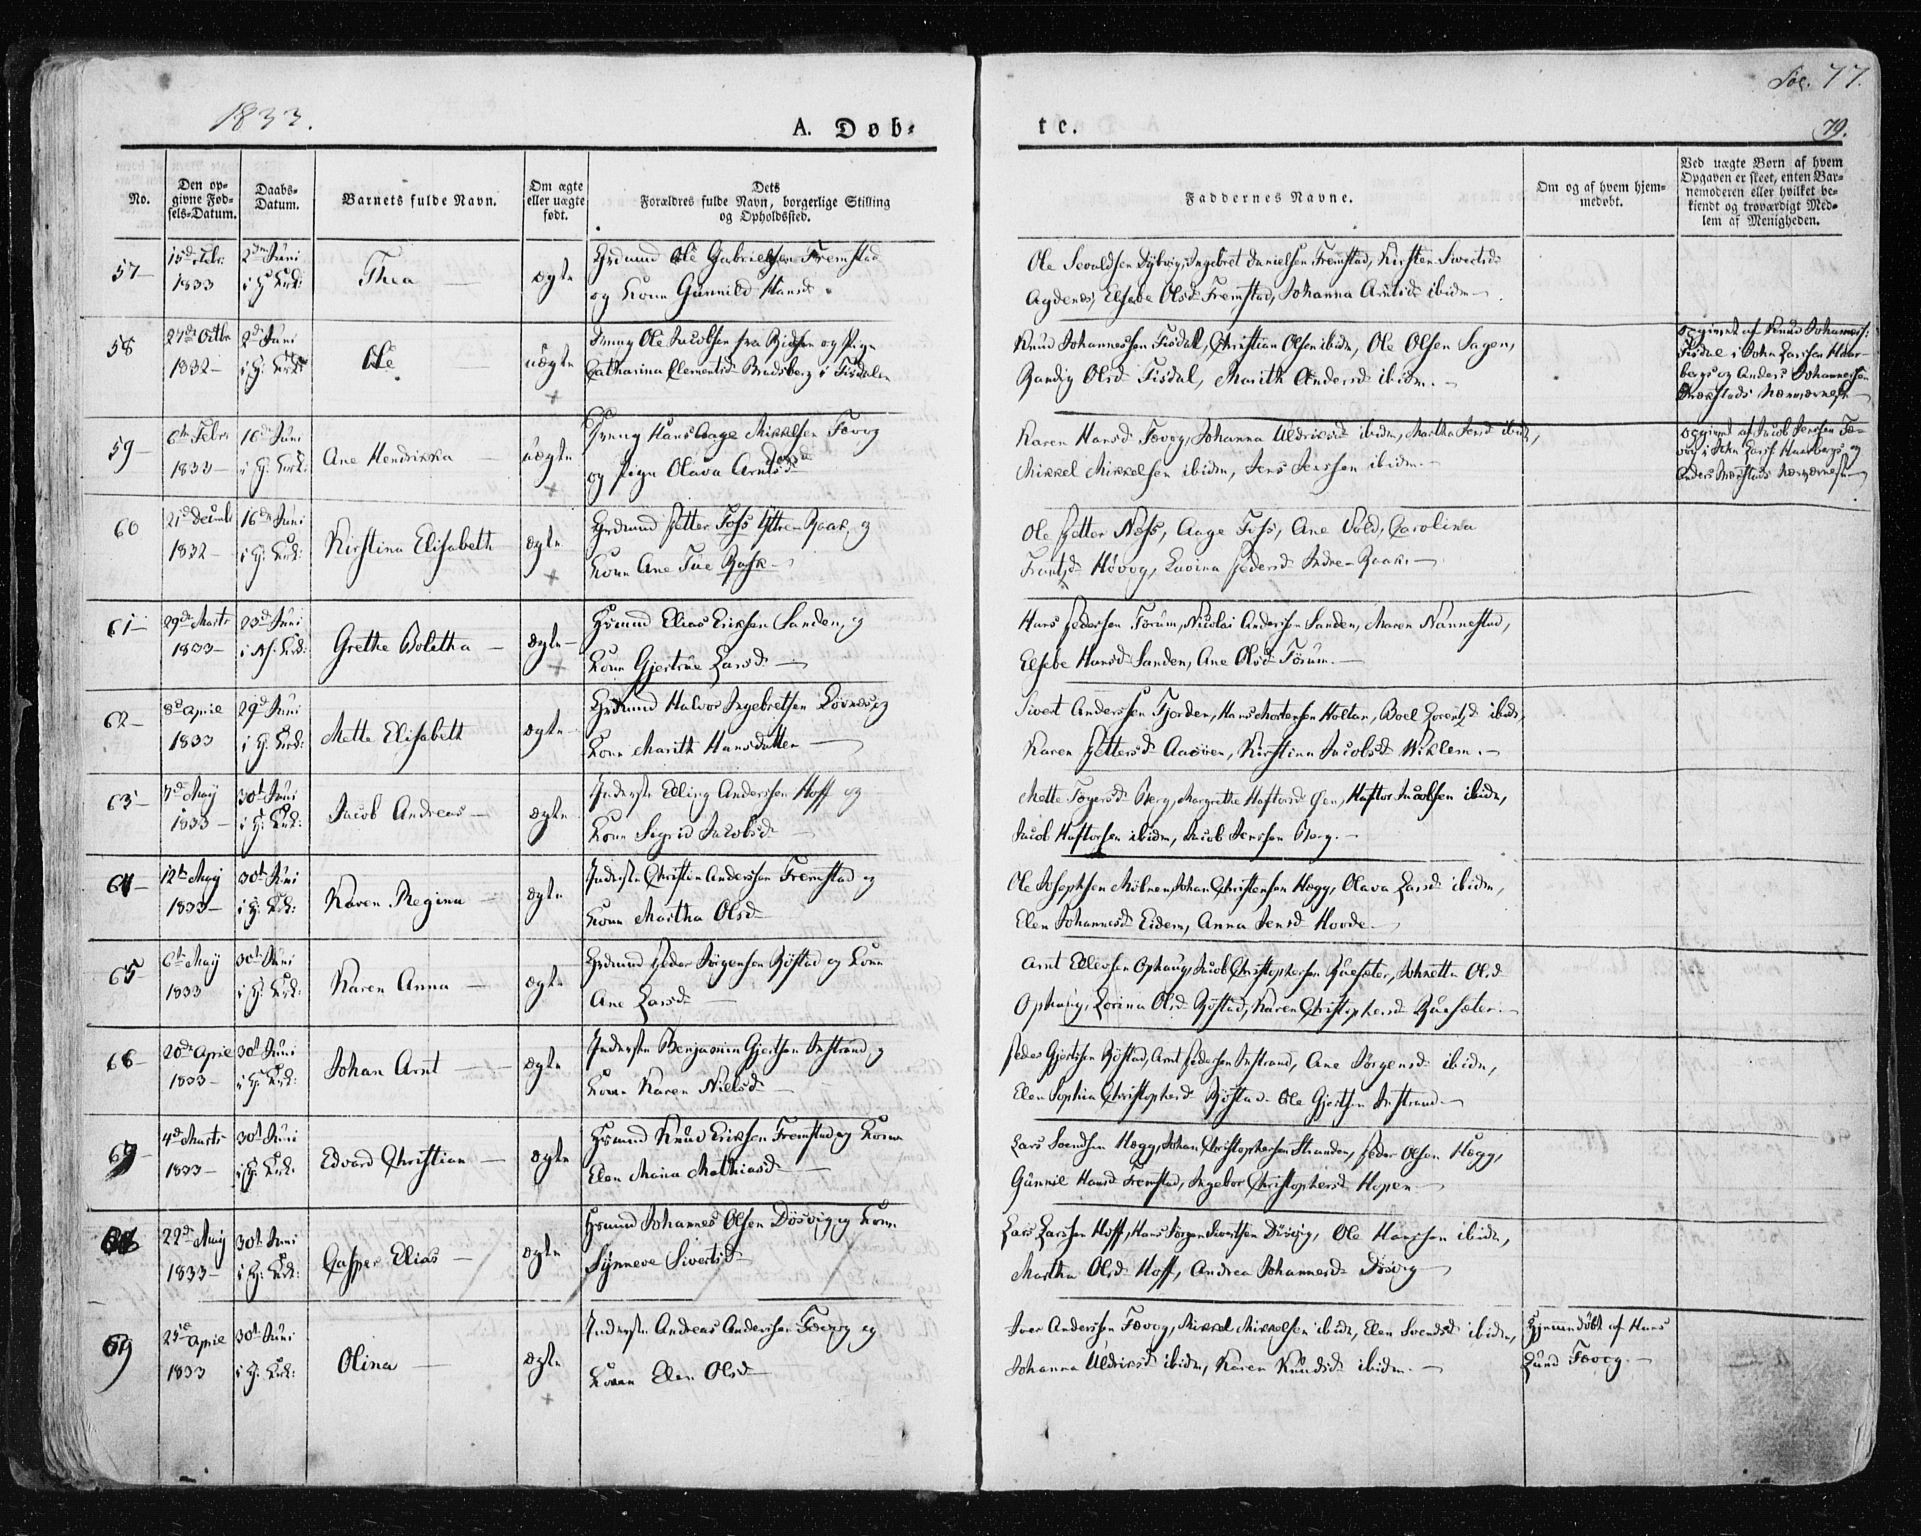 Fol. 77.
1833.
A. Døb-
te.
79.
No.
Den op-
givne Fød-
sels-Datum.
Daabs-
Datum.
Barnets fulde Navn.
Om ægte
eller uægte
født.
Dets
Forældres fulde Navn, borgerlige Stilling
og Opholdssted.
Faddernes Navne.
Om og af hvem hjem-
medøbt.
Ved uægte Børn af hvem
Opgaven er skeet, enten Bar-
nemoderen eller hvilket be-
kiendt og troværdigt Med-
lem af Menigheden.
57
15de Febr.
1833
2den Juni
Thea
ægte
Ole Gabrielsen Fremstad
og Kone Gunnild Hansd.
Ole Sevaldsen Ingebret Danielsen Fremstad, Kirsten Sivertsd.
Agdenes, Elsebe Olsd. Fremstad, Johanna Arntsd. ibidm
58
27de Octbr
1832
2den Juni
Ole
uægte
Ole Jacobsen fra og Pige
Catharina Clementsd. Bradsberg i Tisdalen
Knud Johannessen Tisdal, Christian Olsen ibidm, Ole Olsen Sagen,
Randig Olsd. Tisdal, Marith Andersd. ibidm.
opgivet af Knud Johanness.
Tisdal i John Larssen Haar-
bergs og Anders Johannessen
Nærværelse
59
6te Febr
1833
16de Juni
Ane Hendrikka
uægte
Hans Aage Mikkelsen Fævog
og Pige Olava Arntsd.
Karen Hansd. Fævog, Johanna Uldriksd. ibidm, Martha Jensd. ibidm,
Mikkel Mikkelsen ibidm, Jens Jenssen ibidm.
opgivet af Jacob Jenssen Fæ-
vog i John Larss. Haarbergs og
Anders Nærværelse
60
21de Decemb
1832
16de Juni
Kirstina Elisabeth
ægte
Petter Foss Ytre-Raak, og
Kone Ane
Ole Petter Næss, Aage Foss, Ane Vold, Carolina
Høvog, Lavina Pedersd. Indre-Raak.
61
29de Marts
1833
23de Juni
Grethe Boletha
ægte
Elias Eriksen Sanden, og
Kone Gjertrue Larsd.
Hans Pedersen Nicolai Andersen Sanden, Maren Nannestad,
Elsebe Hansd. Sanden, Ane Olsd.
62
8de April
1833
29de Juni
Mette Elisabeth
ægte
Halvor Ingebretsen og
Kone Marith Hansdatter
Sivert Andersen Fjorden, Hans Mortensen Holtan, Boel ibidm,
Karen Pettersd. Kirstine Jacobsd. Wiklem.
63
7de May
1833
30te Juni
Jacob Andreas
ægte
Inderste Elling Anderssen Hoff og
Kone Sigrid Jacobsd.
Mette Berg, Margrethe Haftorsd. Øen, Haftor Jacobsen ibidm,
Jacob Haftorsen ibidm, Jacob Jenssen Berg.
64
12te May
1833
30te Juni
Karen Regina
ægte
Inderste Christen Anderssen Fremstad og
Kone Martha Olsd.
Ole Josephsen Johan Christensen Hegg, Olava Larsd. ibidm,
Elen Johannesd. Eidem, Anna Jensd. Hovde.
65
6te May
1833
30te Juni
Karen Anna
ægte
Peder Jørgensen Røstad og Kone
Ane Larsd.
Arnt Ellevsen Ophaug, Jacob Christophersen Johnetta Olsd.
Ophaug, Lorina Olsd. Røstad, Karen Christophersd.
66
20de April
1833
30te Juni
Johan Arnt
ægte
Inderste Benjamin Gjertsen og
Kone Karen Nielsd.
Peder Gjertsen Røstad, Arnt Pedersen Ane Jørgensd. ibidm,
Elen Sophia Christophersd. Røstad Ole Gjertsen
4de Marts
1833
30te Juni
Edvard Christian
ægte
Knud Eriksen Fremstad og Kone
Elen Maria Mathiasd.
Lars Svendsen Hegg, Johan Christophersen Stranden, Peder Olsen Hegg,
Gunnil Hansd. Fremstad, Ingebor Christophersd. Hopen
22de May
1833
30te Juni
Casper Elias
ægte
Johannes Olsen Døsvig, og Kone
Synneve Sivertsd.
Lars Larssen Hoff, Hans Jørgen Sivertsen Døsvig, Ole Hanssen ibidm,
Martha Olsd. Hoff, Andrea Johannesd. Døsvig
69
25de April
1833
30te Juni
Olina
ægte
Inderste Andreas Anderssen Fævog og
Kone Elen Olsd.
Iver Anderssen Fævog, Mikkel Mikkelsen ibidm, Elen Svendsd. ibidm,
Johanna Uldriksd. ibidm, Karen Knudsd. ibidm.
Hjemmedøbt af Hans
Lund Fævog.